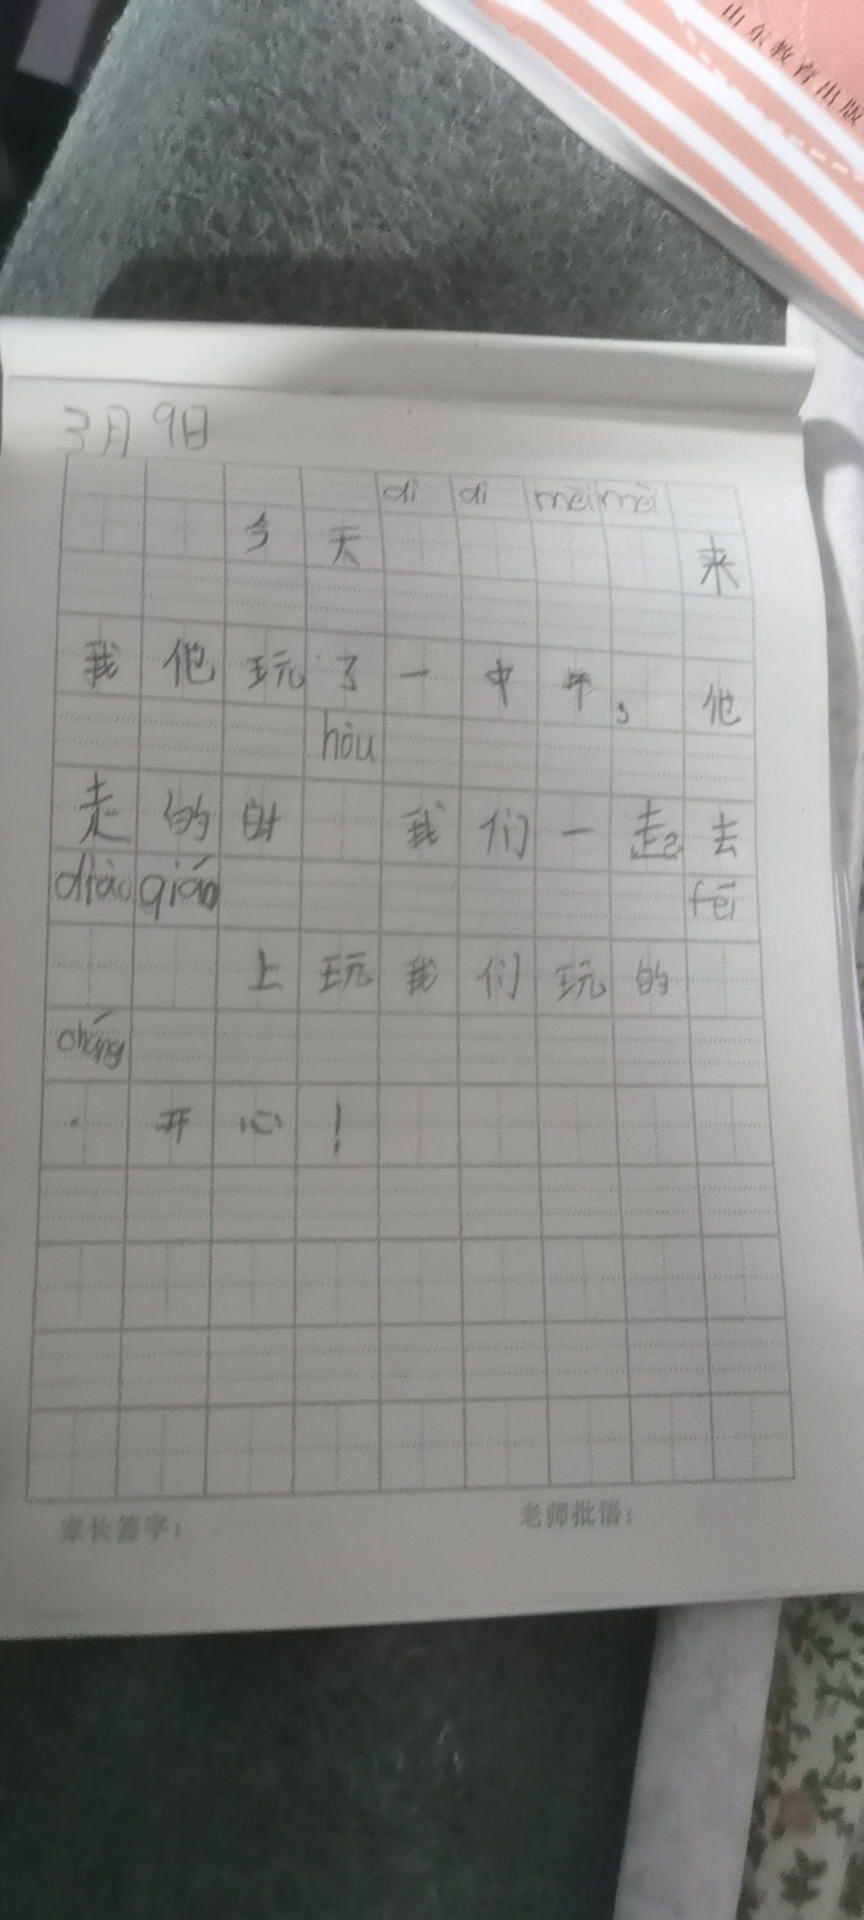 山东教育出版
3月9日
dì di mèi mei
今天 来
我他玩了一中午，他
hòu
走的时 我们一起去
diào qiáo fēi
上玩我们玩的
cháng
开心！
家长签字：
老师批语：